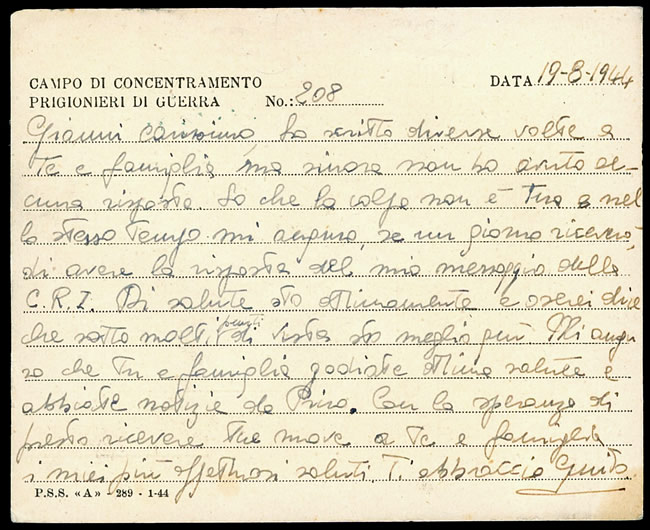 CAMPO DI CONCENTRAMENTO
PRIGIONIERI DI GUERRA No.: 208
DATA 19-8-1944
Gianni carissimo, ho scritto diverse volte a
Te e famiglia ma sinora non ho avuto al-
cuna risposta. So che la colpa non è Tua e nel
lo stesso tempo mi auguro, se un giorno riceverò,
di avere la risposta del mio messaggio della
C.R.I. Di salute sto ottimamente e oserei dire
che sotto molti punti di vista sto meglio qui. Mi augu
ro che Tu e famiglia godiate ottima salute e
abbiate notizie da Piero. Con la speranza di
presto ricevere tue nuove a Te e famiglia
i miei più affettuosi saluti. Ti abbraccio Guido
P.S.S. «A» - 289 - 1-44